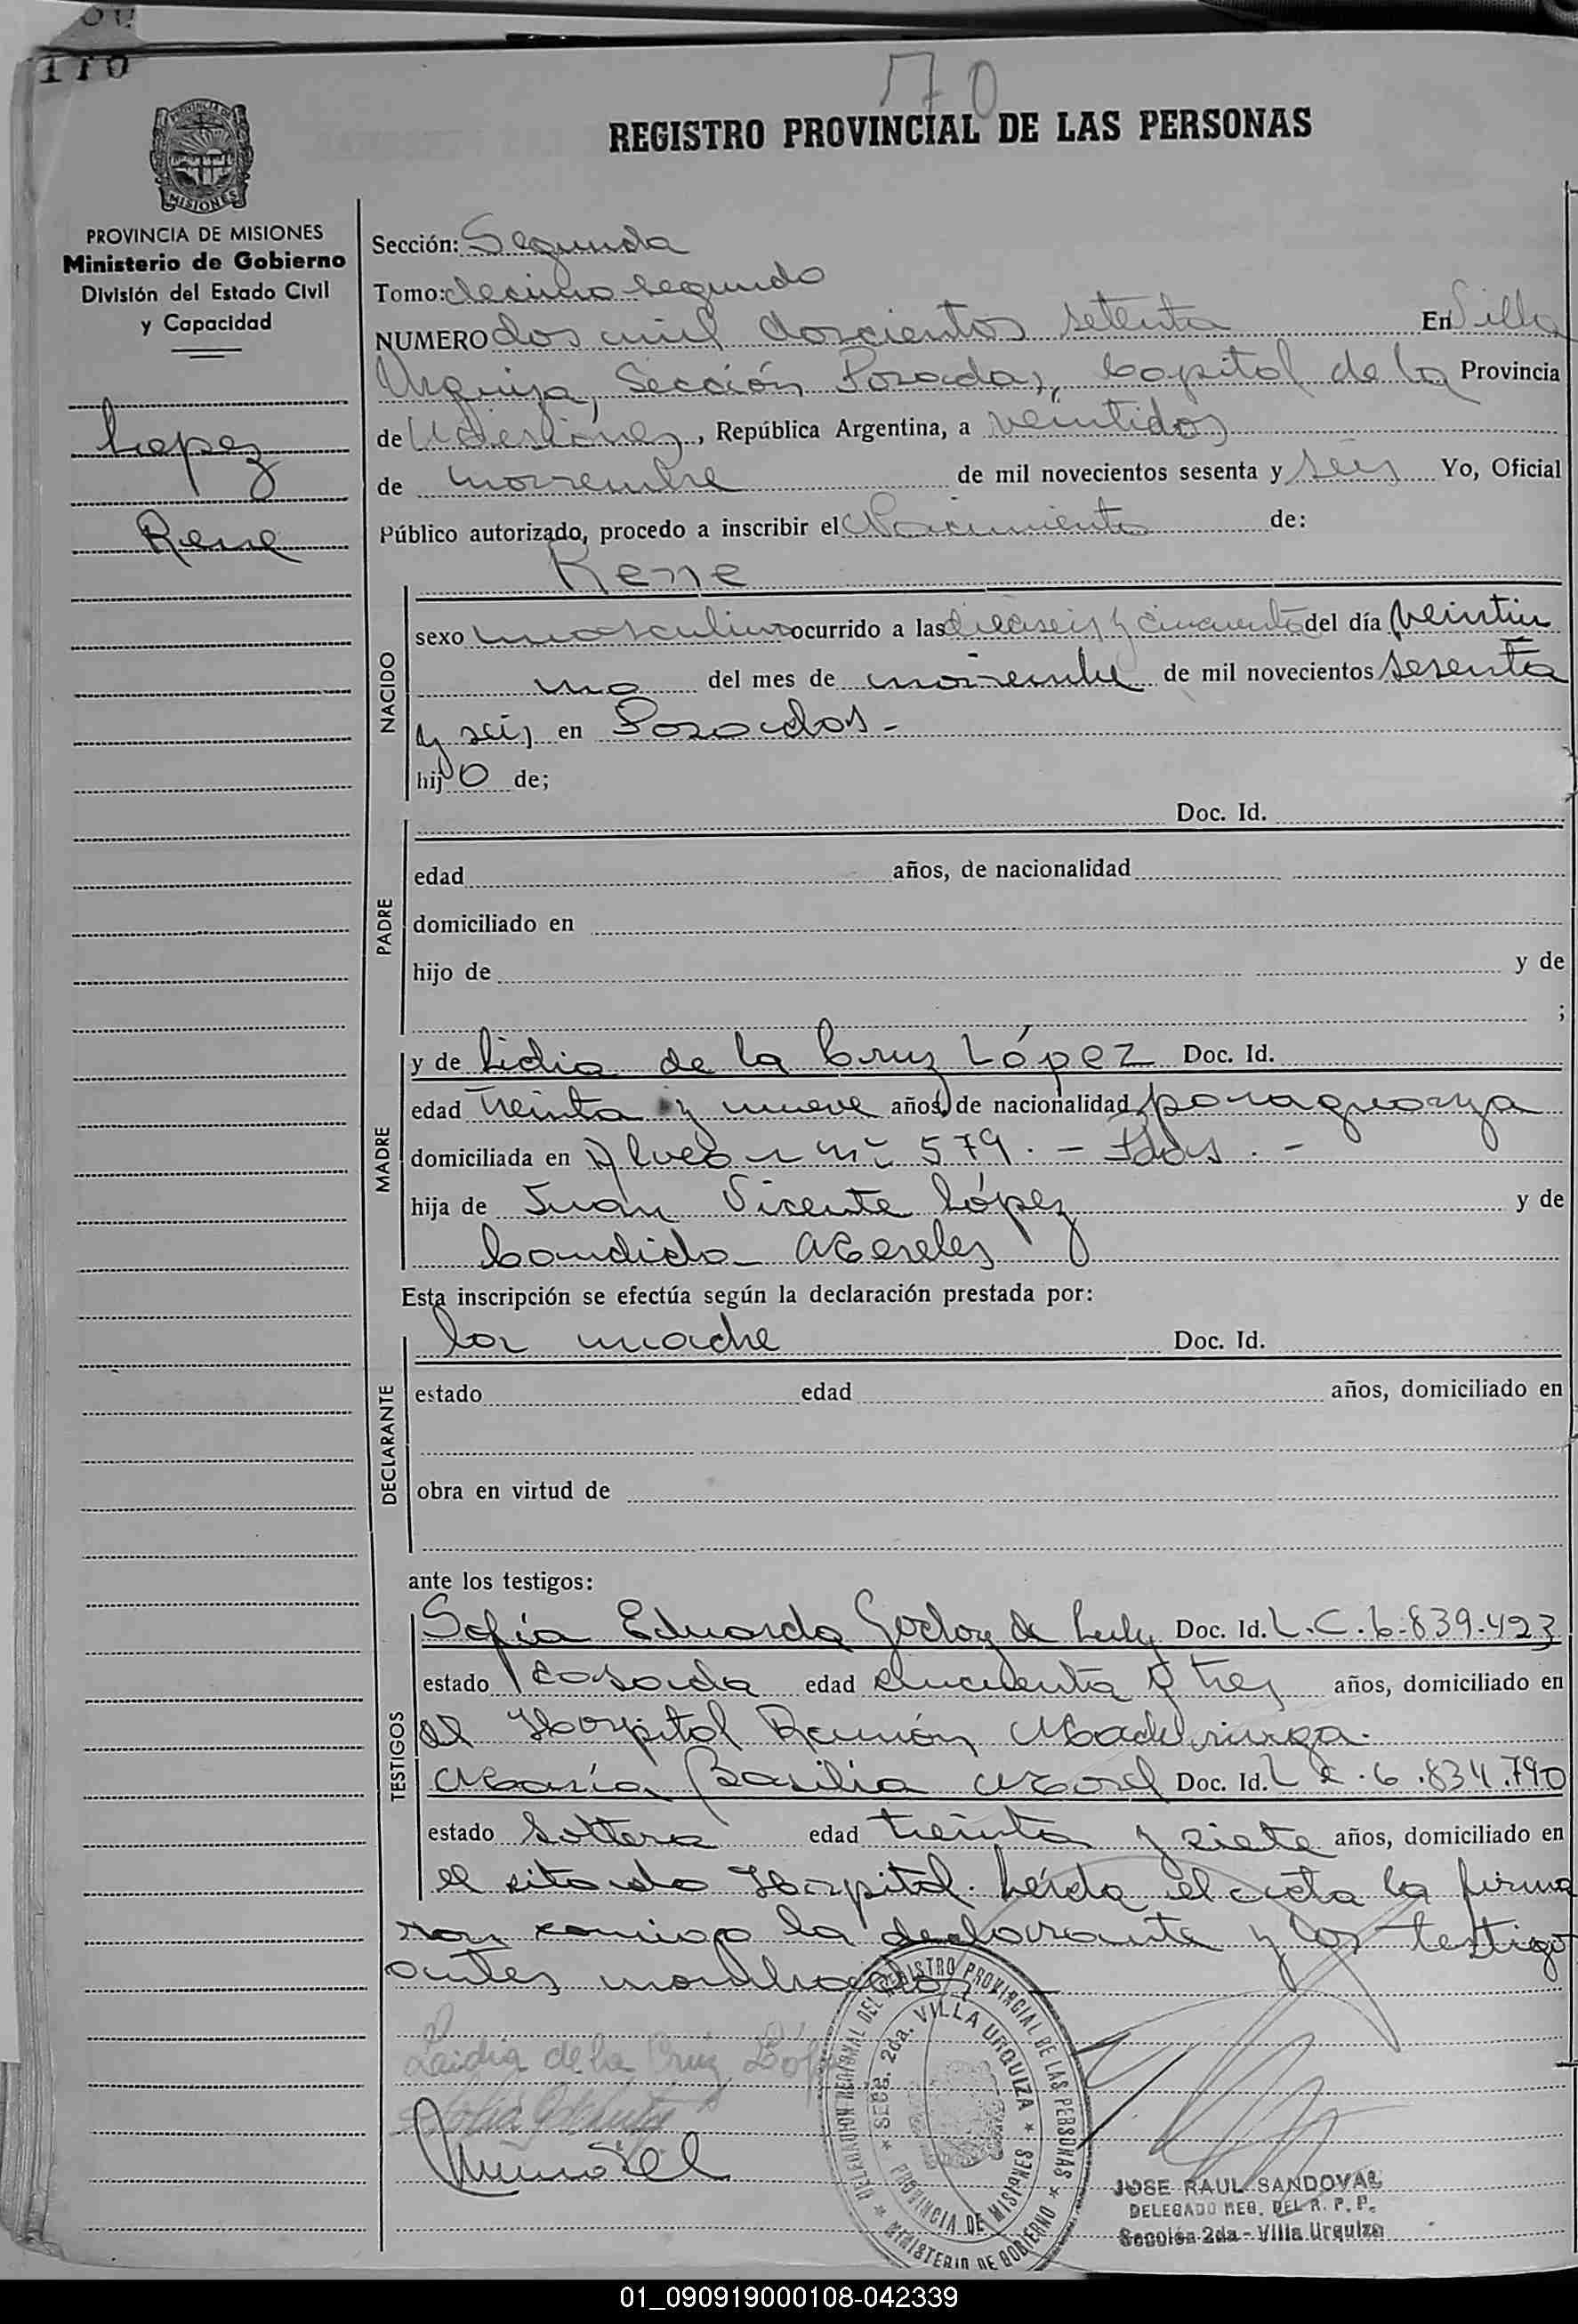 110
70
REGISTRO PROVINCIAL DE LAS PERSONAS
PROVINCIA DE MISIONES
Ministerio de Gobierno
División del Estado Civil
y Capacidad
Lopez
Rene
Sección: Segunda
Tomo: decimo segundo
NUMERO dos mil doscientos setenta En Villa
Urquiza, Sección Posadas, Capital de la Provincia
de Misiones, República Argentina, a veintidos
de noviembre de mil novecientos sesenta y seis Yo, Oficial
Público autorizado, procedo a inscribir el Nacimiento de:
Rene
NACIDO
sexo masculino ocurrido a las dieciseis y cincuenta del día veintiu
no del mes de noviembre de mil novecientos sesenta
y seis en Posadas.-
hijo de;
PADRE
Doc. Id.
edad años, de nacionalidad
domiciliado en
hijo de y de
;
MADRE
y de Lidia de la Cruz López Doc. Id.
edad treinta y nueve años, de nacionalidad paraguaya
domiciliada en nº 579. - Pdas. -
hija de Juan Vicente López y de
Candida
Esta inscripción se efectúa según la declaración prestada por:
DECLARANTE
la madre Doc. Id.
estado edad años, domiciliado en
obra en virtud de
ante los testigos:
TESTIGOS
Sofía Eduarda Godoy de Doc. Id. L.C.6.839.423
estado casada edad cincuenta y tres años, domiciliado en
el Hospital Ramón Madariaga.
María Basilia Morel Doc. Id. L.C.6.834.790
estado soltera edad treinta y siete años, domiciliado en
el sitado Hospital. Leída el acta la firma
ron conmigo la declarante y los testigos
antes nombrados.
Laidia de la Cruz López
DELEGACION REGIONAL DEL REGISTRO PROVINCIAL DE LAS PERSONAS
SECC. 2da. VILLA URQUIZA
PROVINCIA DE MISIONES
MINISTERIO DE GOBIERNO
JOSE RAUL SANDOVAL
DELEGADO REG. DEL R. P. P.
Sección 2da - Villa Urquiza
01_090919000108-042339